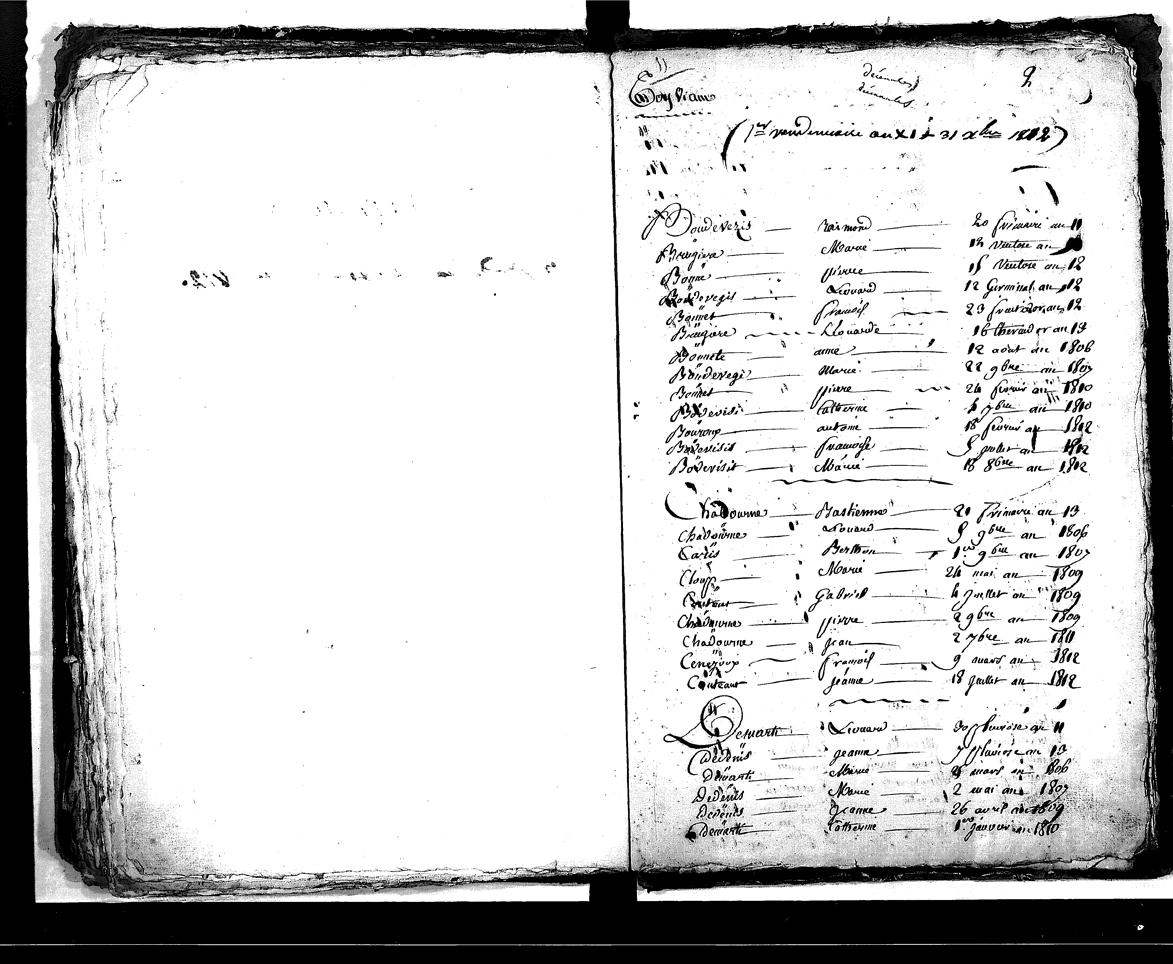 décennales
2
(1er vendemiaire an XI à 31 Xbre 1812)
Boudevezis Raimond 20 frimaire an 11
Brugiere Marie 12 Ventose an
Bonne pierre 15 Ventose an 12
Boudevegis Léonard 12 Germinal an 12
Bonnet francois 23 fructidor an 12
Brugiere Léonarde 16 thermidor an 13
Bonnete anne 12 aout an 1806
Boudevegi Marie 22 9bre an 1807
Bonnet pierre 24 fevrier an 1810
Catherine 4 7bre an 1810
Bouroux antoine 18 fevrier an 1812
francoise 5 juillet an 1812
Bodevisit Marie 18 8bre an 1812
Chadourne Bastienne 21 frimaire an 13
Chadourne Léonard 5 9bre an 1806
Berthon 1er 9bre an 1807
Cloup Marie 24 mai an 1809
Couteaut Gabriel 4 juillet an 1809
Chadourne pierre 2 9bre an 1809
Chadourne jean 2 7bre an 1811
francois 9 mars an 1812
Couteaut jeanne 18 juillet an 1812
Demarti Léonard 30 pluviose an 11
Dedenis jeanne 7 pluviose an 13
Demarti Marie mars an 1806
Dedenis Marie 2 mai an 1807
Dedenis jeanne 26 avril an 1809
Demarti Catherine 1er janvier an 1810